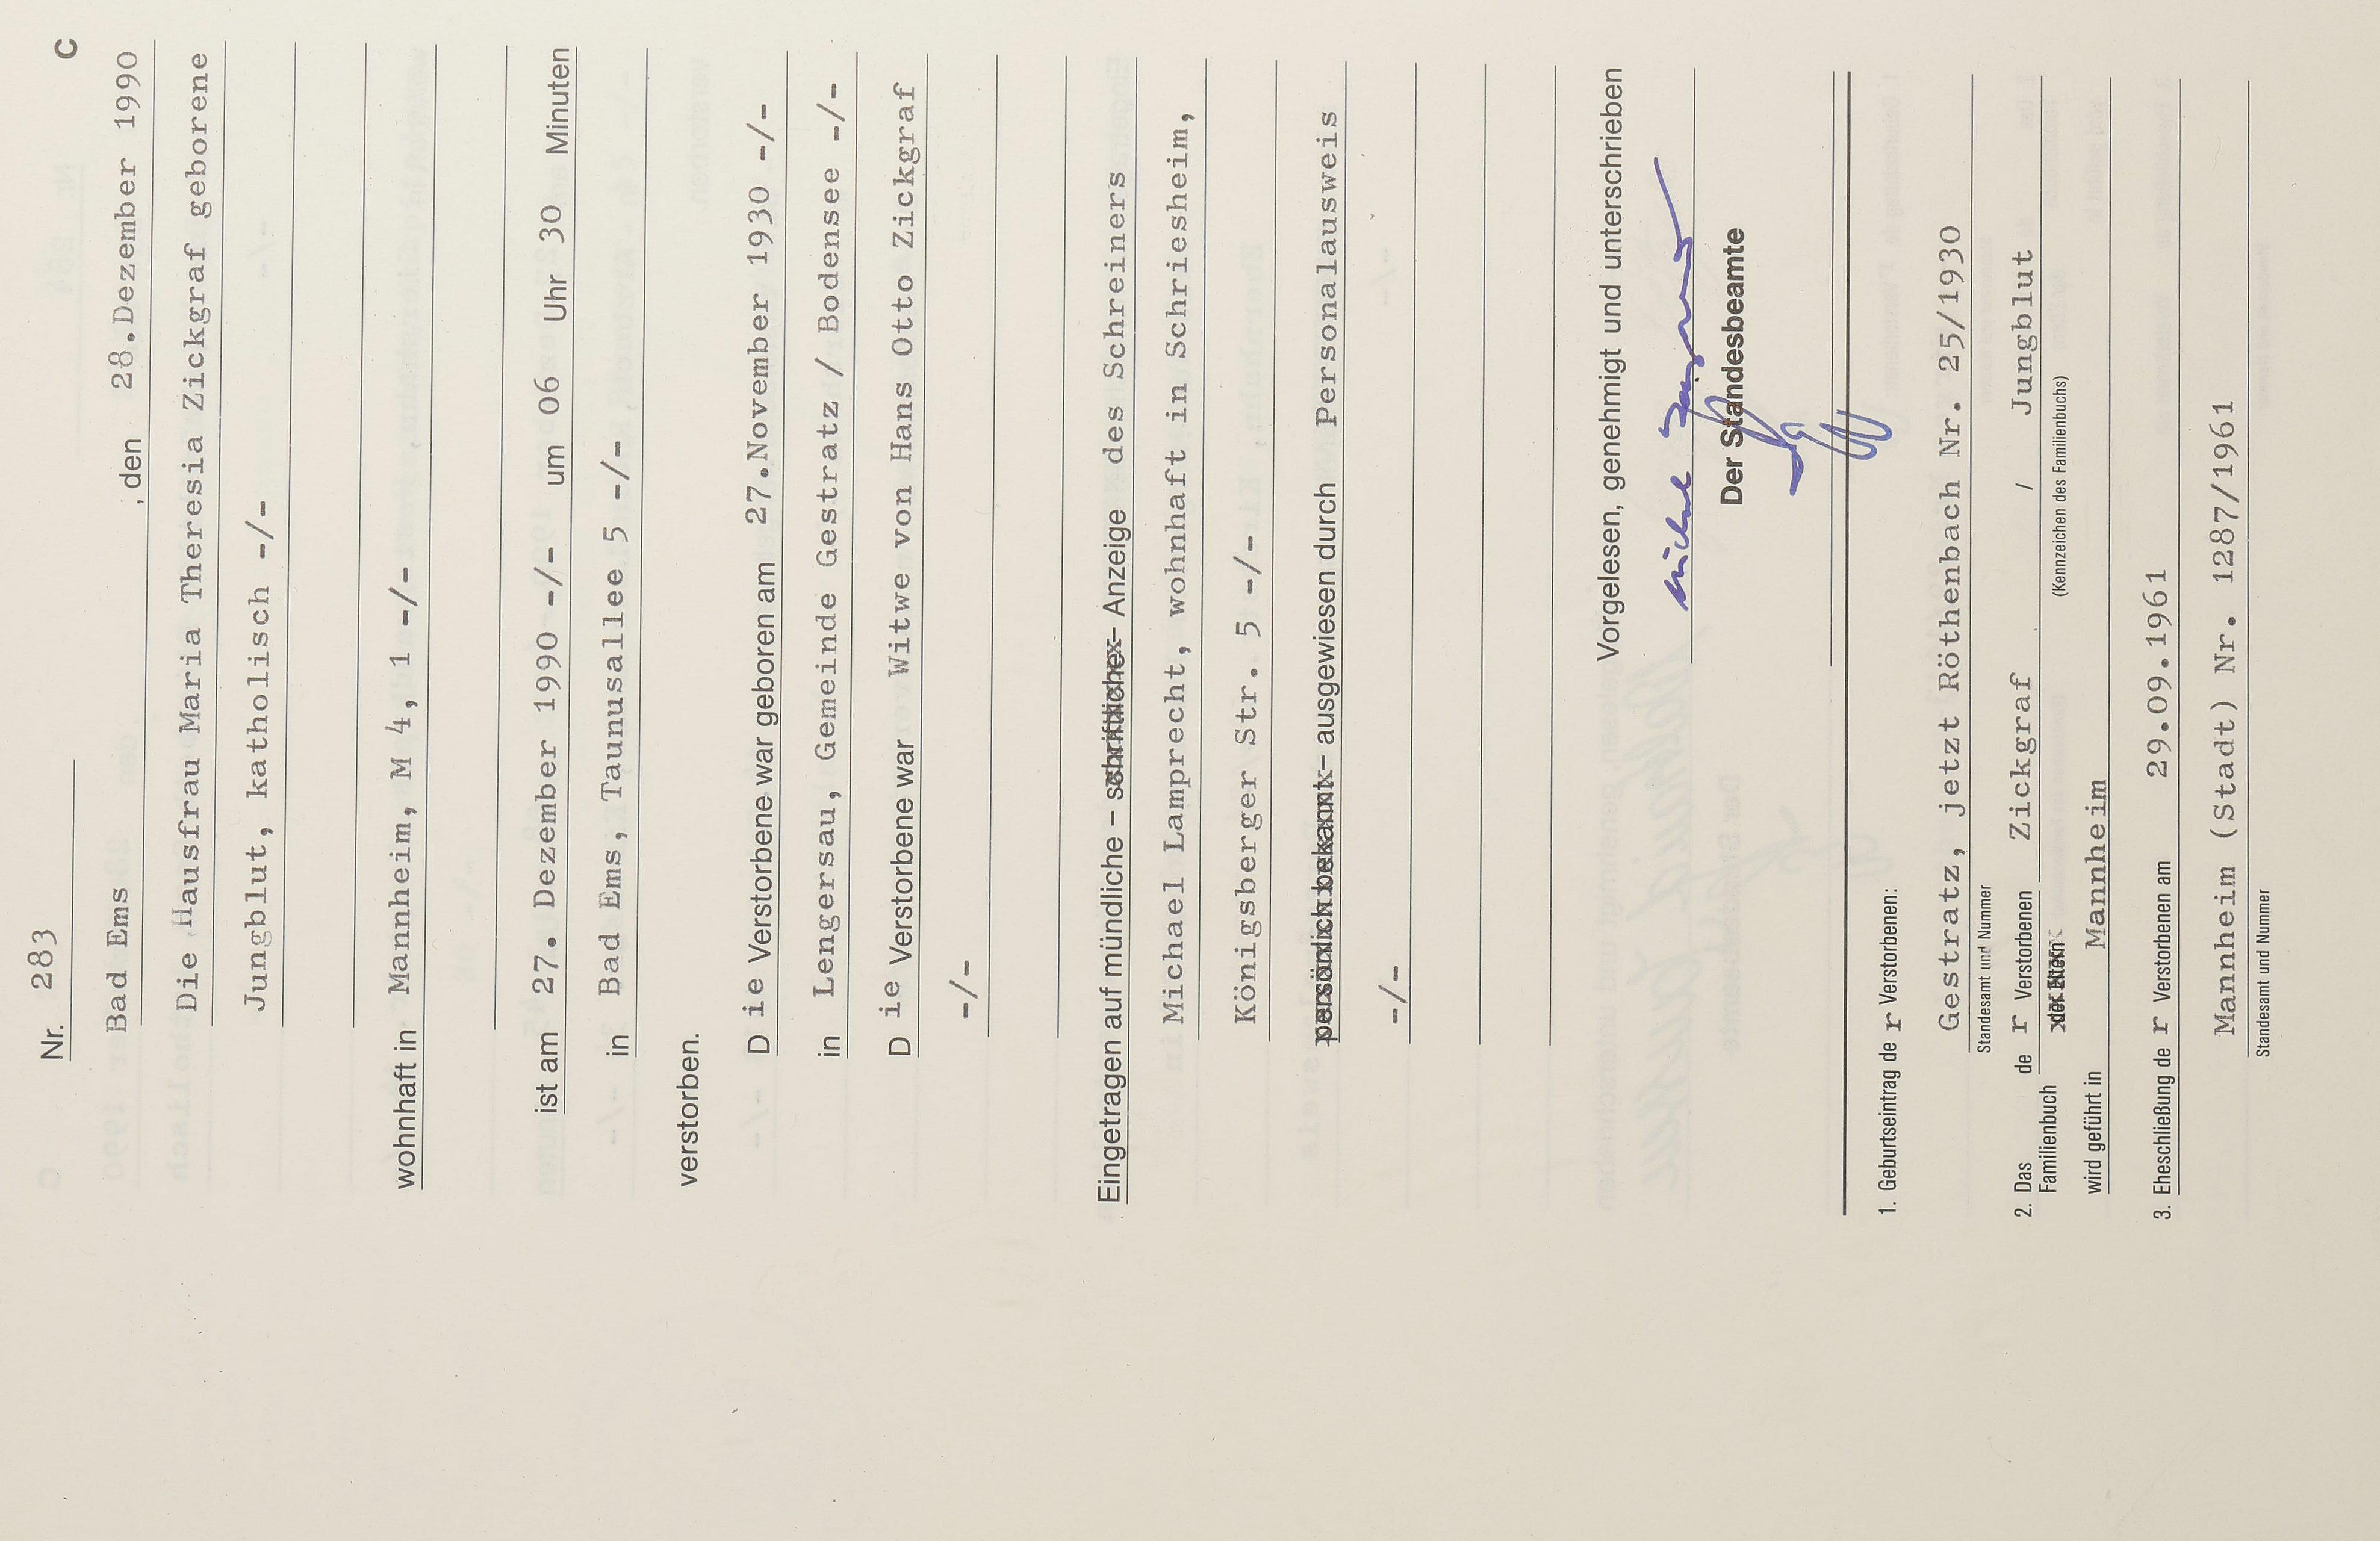 C
Nr. 283
Bad Ems , den 28.Dezember 1990
Die Hausfrau Maria Theresia Zickgraf geborene
Jungblut, katholisch -/-
wohnhaft in Mannheim, M 4, 1 -/-
ist am 27. Dezember 1990 -/- um 06 Uhr 30 Minuten
in Bad Ems, Taunusallee 5 -/-
verstorben.
D ie Verstorbene war geboren am 27.November 1930 -/-
in Lengersau, Gemeinde Gestratz / Bodensee -/-
D ie Verstorbene war Witwe von Hans Otto Zickgraf
-/-
Eingetragen auf mündliche – schriftliche – Anzeige des Schreiners
Michael Lamprecht, wohnhaft in Schriesheim,
Königsberger Str. 5 -/-
persönlich bekannt – ausgewiesen durch Personalausweis
-/-
Vorgelesen, genehmigt und unterschrieben
Der Standesbeamte
1. Geburtseintrag de r Verstorbenen:
Gestratz, jetzt Röthenbach Nr. 25/1930
Standesamt und Nummer
2. Das Familienbuch de r Verstorbenen Zickgraf / Jungblut
der Eltern (Kennzeichen des Familienbuchs)
wird geführt in Mannheim
3. Eheschließung de r Verstorbenen am 29.09.1961
Mannheim (Stadt) Nr. 1287/1961
Standesamt und Nummer